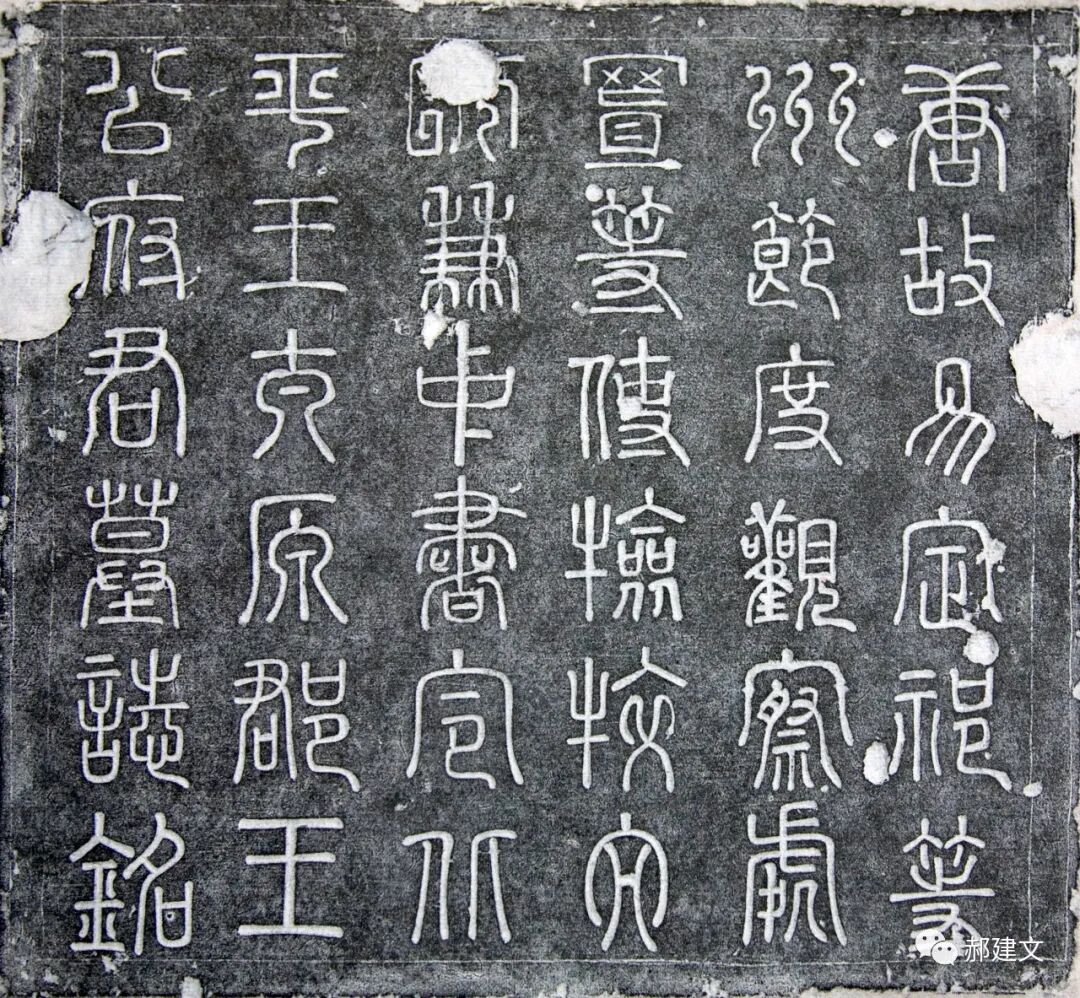 唐故易定祁等
州節度觀察處
置等使檢校太
師兼中書令北
平王太原郡王
公府君墓誌銘
郝建文